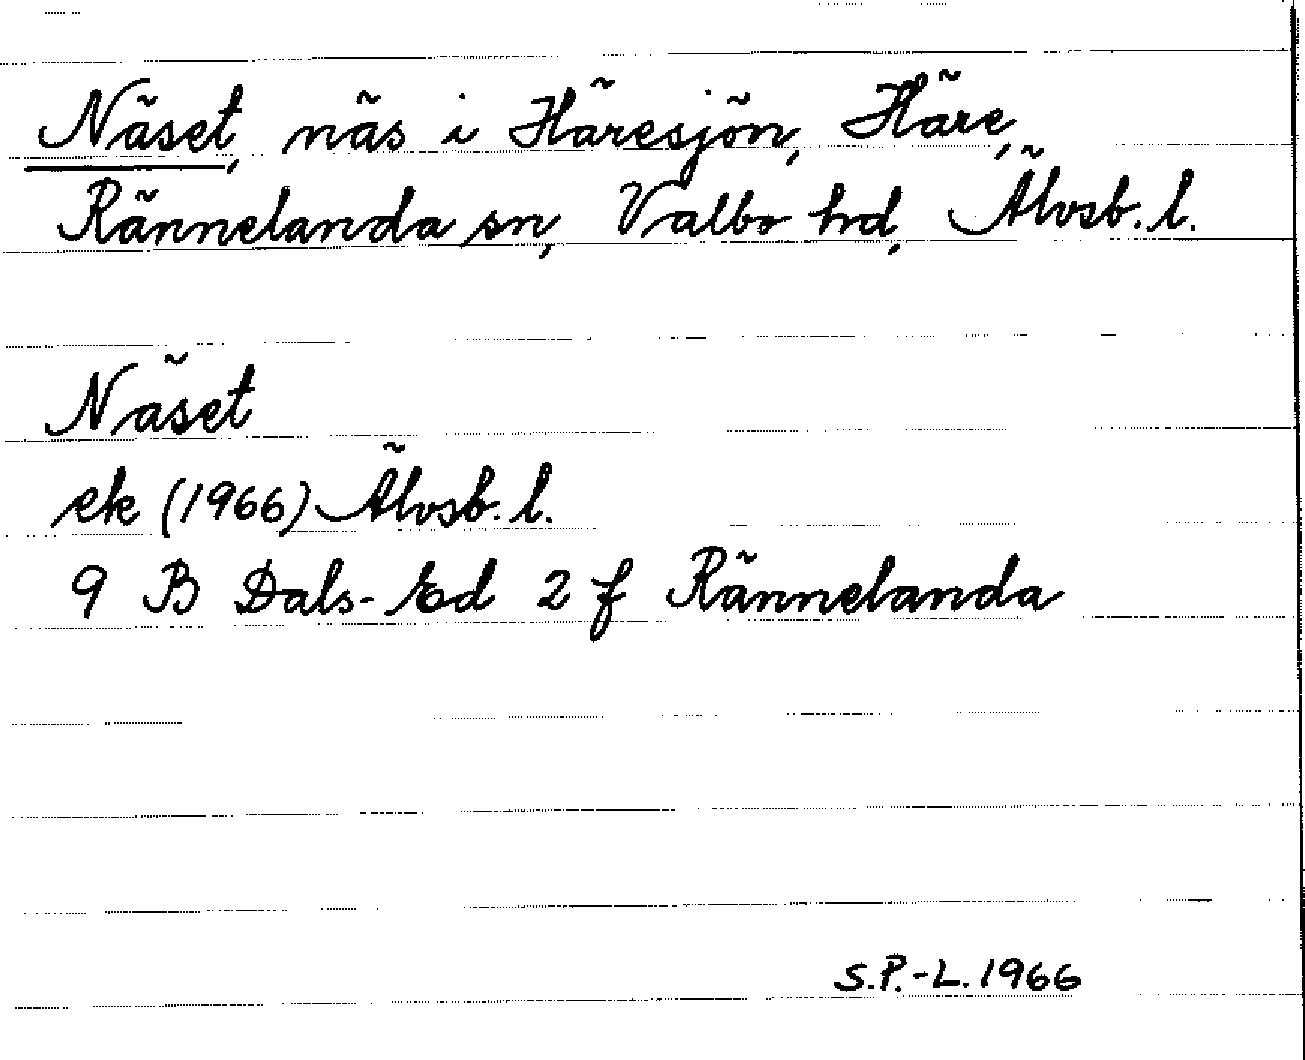 Näset, näs i Häresjön, Häre,
Rännelanda sn, Valbo hd, Älvsb. l.
Näset
ek (1966) Älvsb. l.
9 B Dals-Ed 2 f Rännelanda
S.P.-L. 1966